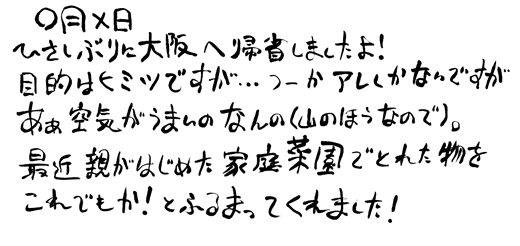 〇月×日
ひさしぶりに大阪へ帰省しましたよ!
目的はヒミツですが…つーかアレしかないですが
あぁ空気がうまいのなんの(山のほうなので)。
最近親がはじめた家庭菜園でとれた物を
これでもか!とふるまってくれました!